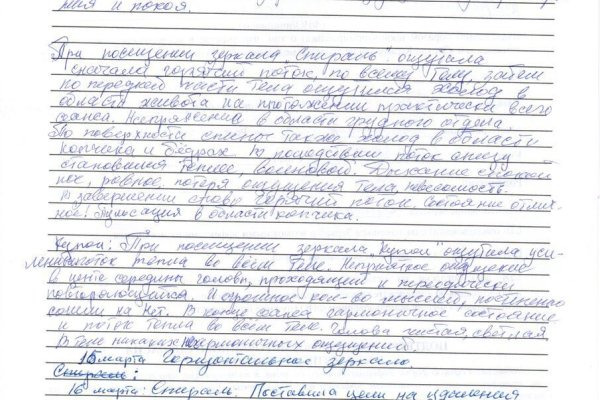 ния и покоя.
При посещении зеркала "Спираль" ощущала
сначала горячий поток, по всему телу, затем
по передней части тела ощущался холод в
области живота на протяжении практически всего
сеанса. Напряжение в области грудного отдела.
По поверхности спины также холод в области
копчика и бедрах. В последствии поток снизу
становился теплее, волновой. Дыхание спокой
ное, ровное, потеря ощущения тела, невесомость.
В завершении снова горячий поток. Состояние отлич-
ное. Пульсация в области копчика.
Купол: При посещении зеркала "Купол" ощутила уси-
ление поток тепла во всем теле. Неприятное ощущение
в центре середины головы, проходящий и периодически
повторяющийся. И огромное кол-во мыслей, постепенно
сошли на нет. В конце сеанса гармоничное состояние
и поток тепла во всем теле. Голова чистая, светлая,
В теле никаких негармоничных ощущений.
15 марта Горизонтальное зеркало.
Спираль:
16 марта: Спираль. Поставила цели на